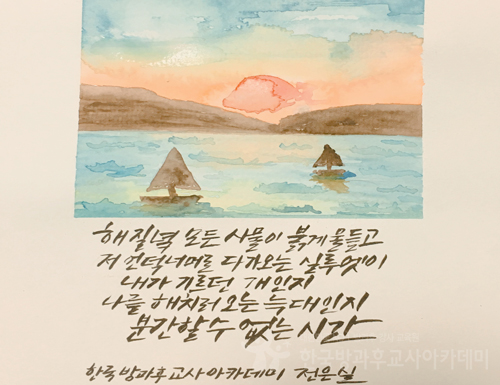 해질녘 모든 사물이 붉게 물들고
저 언덕너머로 다가오는 실루엣이
내가 기르던 개인지
나를 해치러 오는 늑대인지
분간할 수 없는 시간
한국방과후교사아카데미 전은실
한국방과후교사아카데미